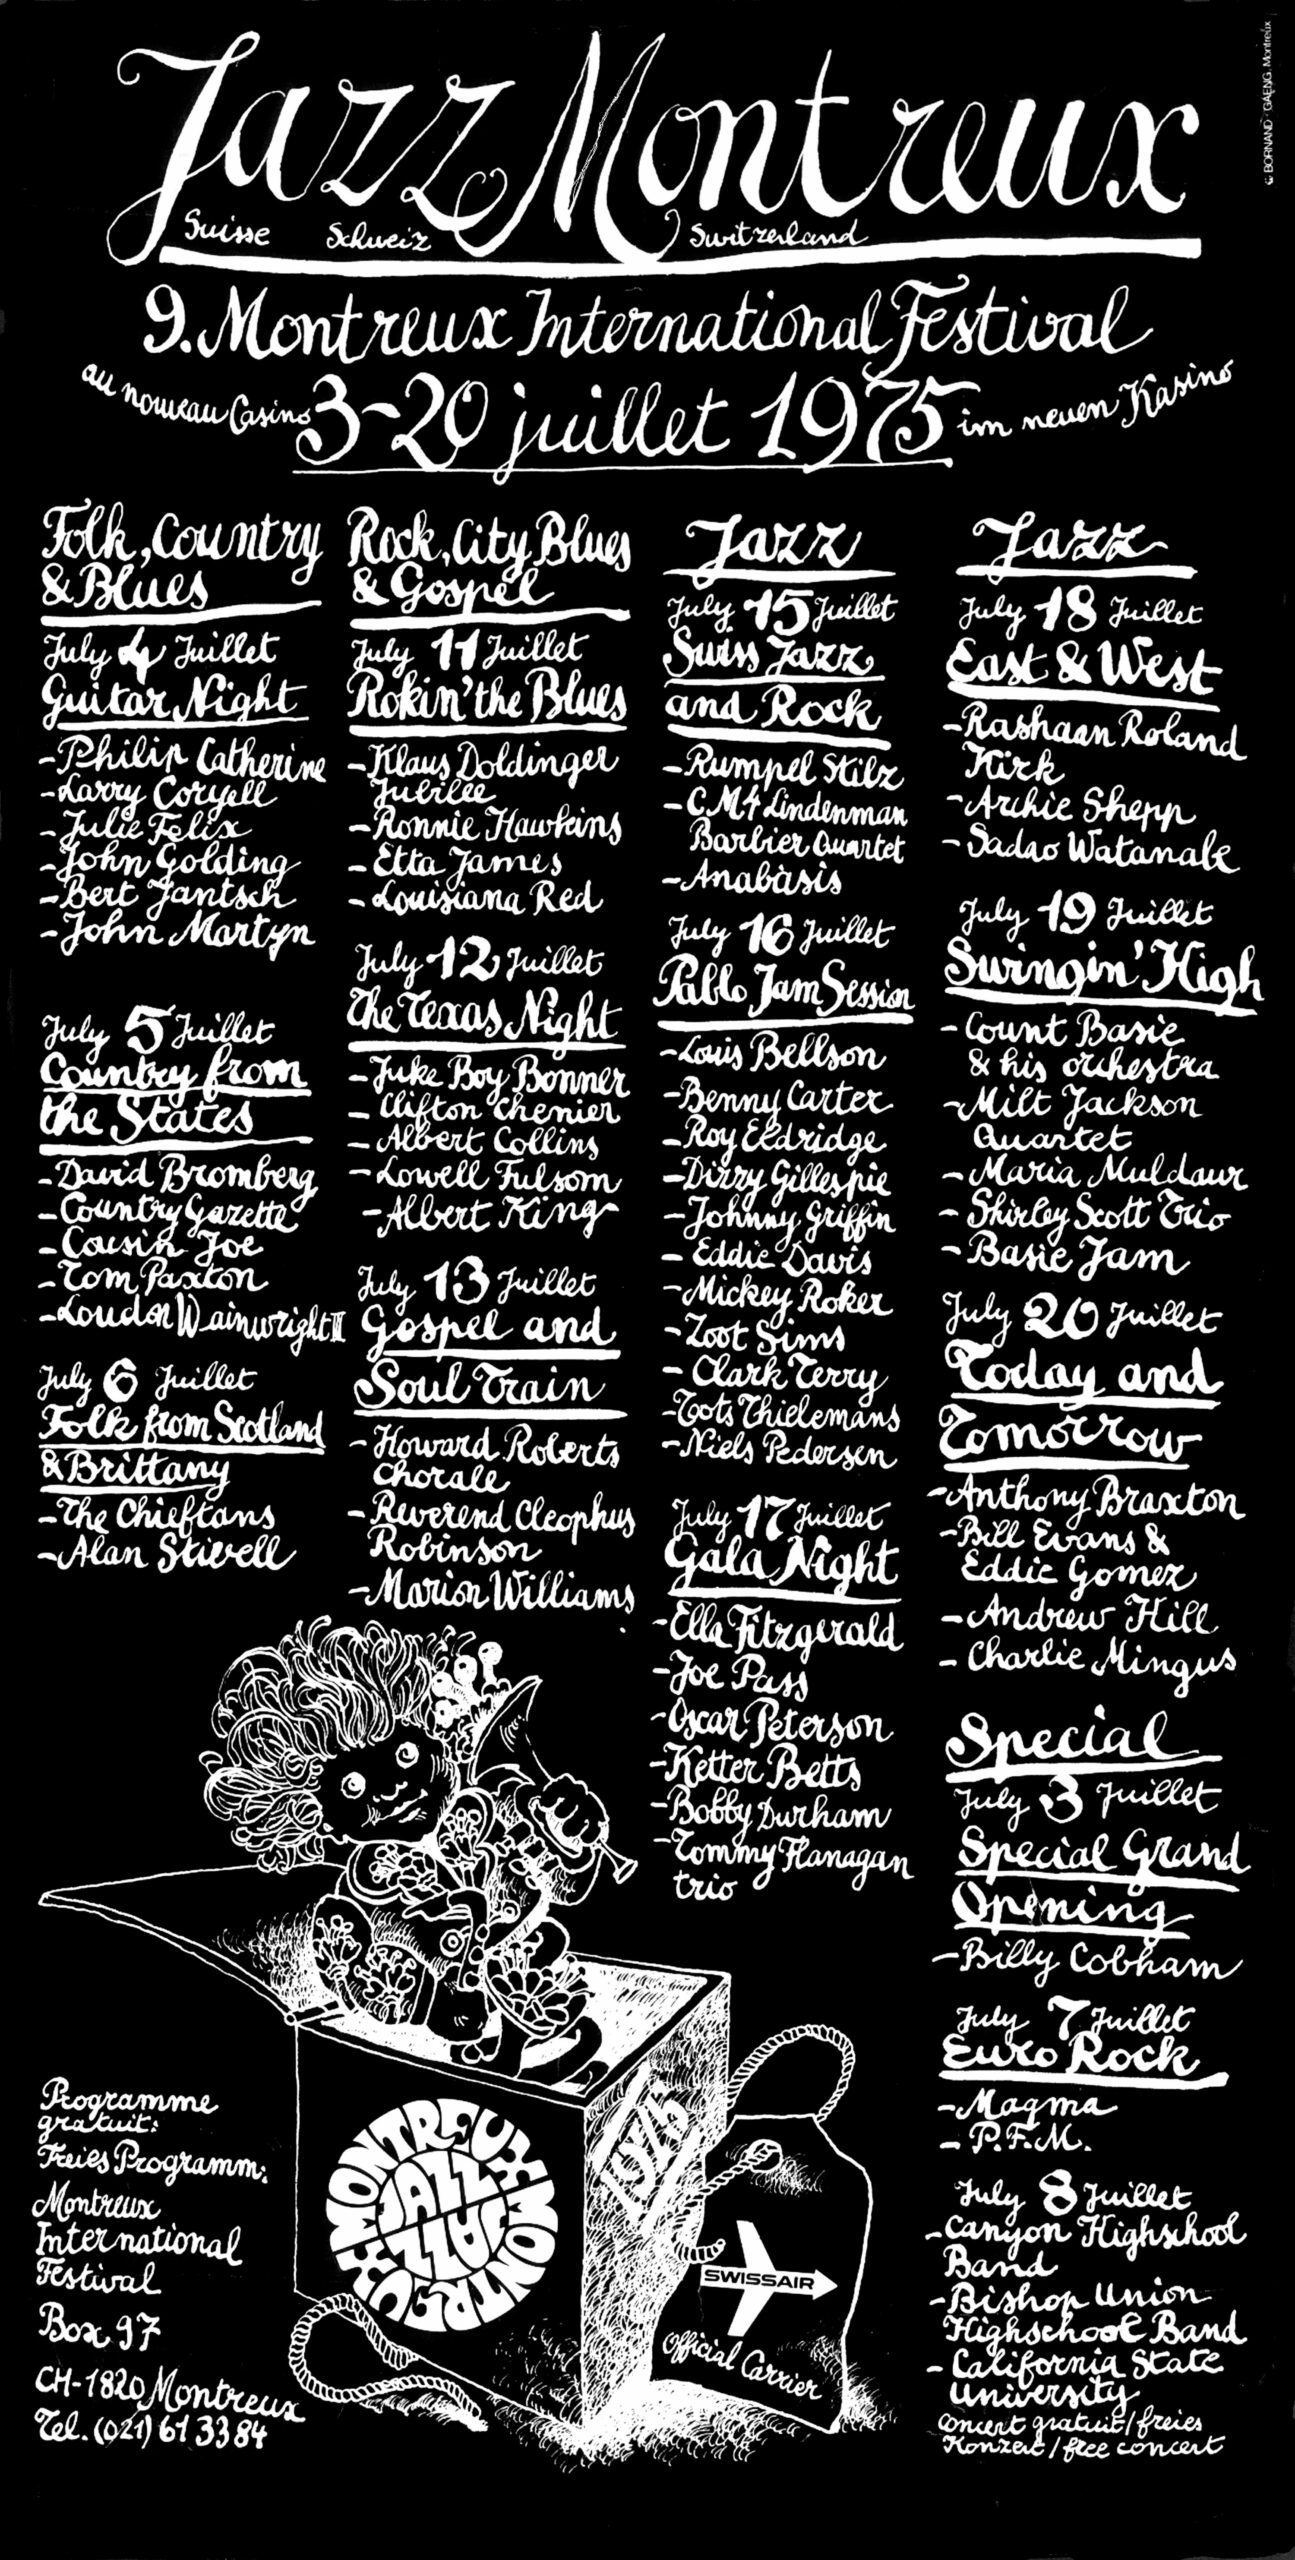 Jazz Montreux
Suisse Schweiz Switzerland
9. Montreux International Festival
au nouveau Casino 3-20 juillet 1975 im neuen Kasino
Folk, Country
& Blues
July 4 Juillet
Guitar Night
- Philip Catherine
- Larry Coryell
- Julie Felix
- John Golding
- Bert Jantsch
- John Martyn
July 5 Juillet
Country from
the States
- David Bromberg
- Country Gazette
- Cousin Joe
- Tom Paxton
- Loudon Wainwright III
July 6 Juillet
Folk from Scotland
& Brittany
- The Chieftans
- Alan Stivell
Rock, City Blues
& Gospel
July 11 Juillet
Rokin' the Blues
- Klaus Doldinger
Jubilee
- Ronnie Hawkins
- Etta James
- Louisiana Red
July 12 Juillet
The Texas Night
- Juke Boy Bonner
- Clifton Chenier
- Albert Collins
- Lowell Fulsom
- Albert King
July 13 Juillet
Gospel and
Soul Train
- Howard Roberts
Chorale
- Reverend Cleophus
Robinson
- Marion Williams
Jazz
July 15 Juillet
Swiss Jazz
and Rock
- Rumpel Stilz
- C.M4 Lindenman
Barbier Quartet
- Anabasis
July 16 Juillet
Pablo Jam Session
- Louis Bellson
- Benny Carter
- Roy Eldridge
- Dizzy Gillespie
- Johnny Griffin
- Eddie Davis
- Mickey Roker
- Zoot Sims
- Clark Terry
- Toots Thielemans
- Niels Pedersen
July 17 Juillet
Gala Night
- Ella Fitzgerald
- Joe Pass
- Oscar Peterson
- Ketter Betts
- Bobby Durham
- Tommy Flanagan
trio
Jazz
July 18 Juillet
East & West
- Rashaan Roland
Kirk
- Archie Shepp
- Sadao Watanabe
July 19 Juillet
Swingin' High
- Count Basie
& his orchestra
- Milt Jackson
Quartet
- Maria Muldaur
- Shirley Scott Trio
- Basie Jam
July 20 Juillet
Today and
Tomorrow
- Anthony Braxton
- Bill Evans &
Eddie Gomez
- Andrew Hill
- Charlie Mingus
Special
July 3 Juillet
Special Grand
Opening
- Billy Cobham
July 7 Juillet
Euro Rock
- Magma
- P.F.M.
July 8 Juillet
- Canyon Highschool
Band
- Bishop Union
Highschool Band
- California State
University
concert gratuit / freies
Konzert / free concert
Programme
gratuit:
Freies Programm:
Montreux
International
Festival
Box 97
CH-1820 Montreux
Tel. (021) 61 33 84
MONTREUX MONTREUX
JAZZ JAZZ
1975
SWISSAIR
Official Carrier
© BORNAND · GAENG, Montreux